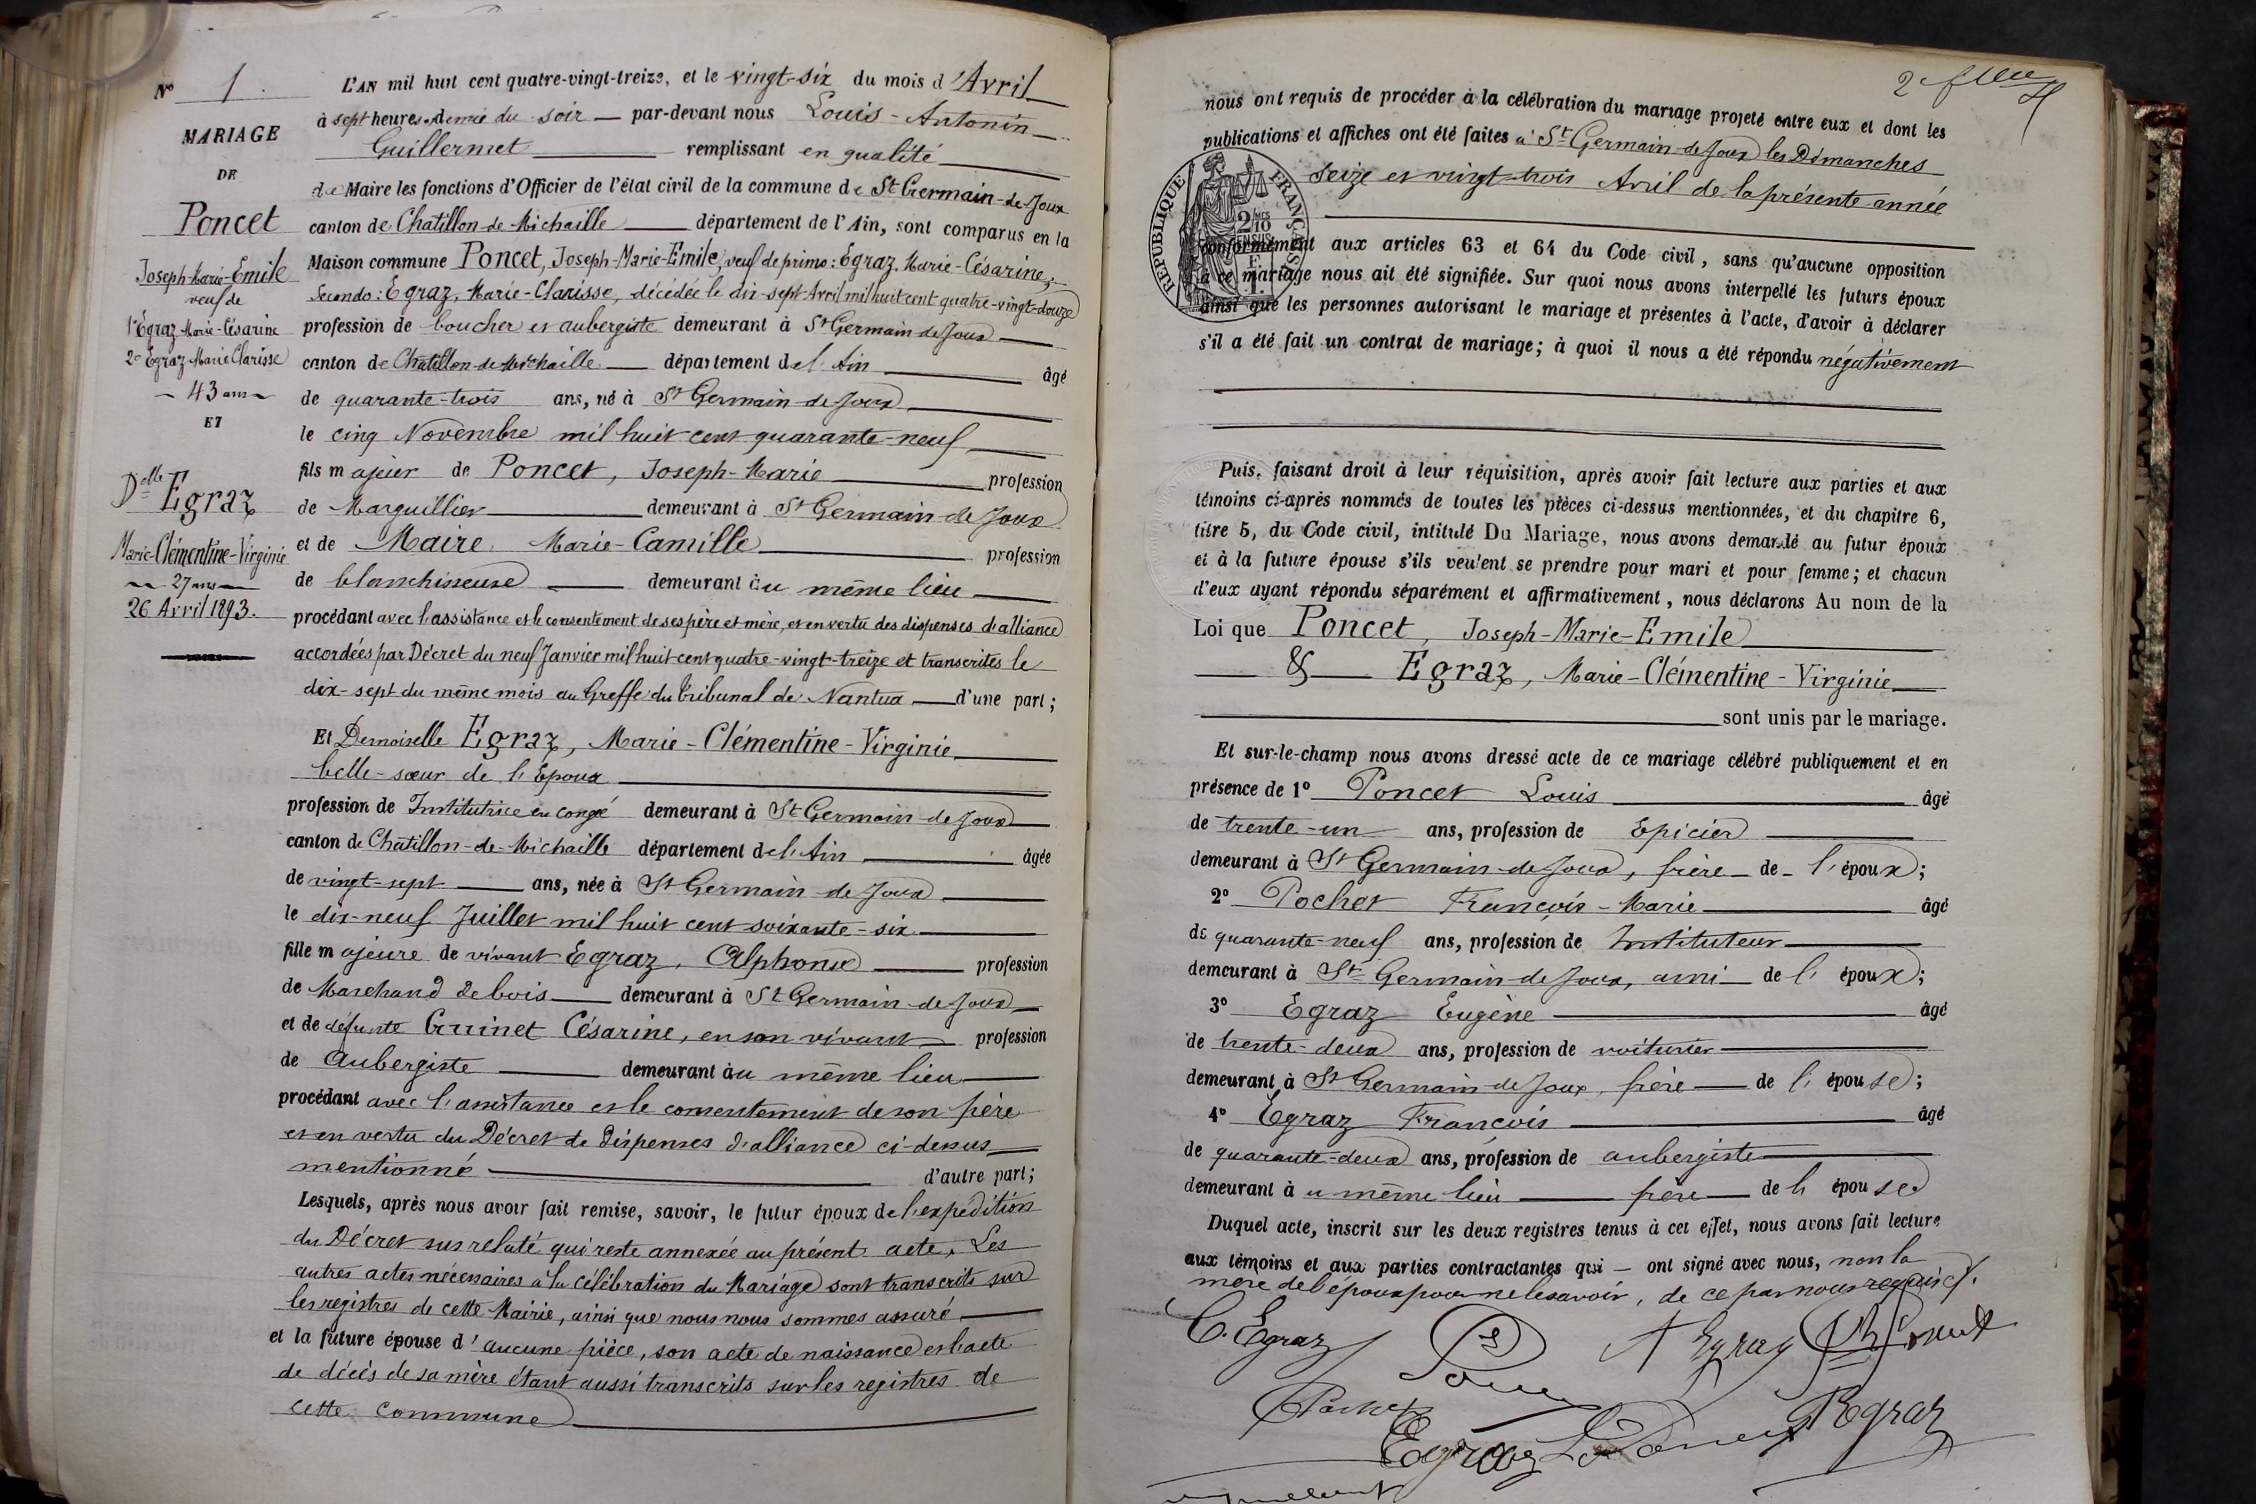 N° 1.
MARIAGE
DE
Poncet
Joseph-Marie-Emile
veuf de
1° Egraz Marie-Césarine
2° Egraz Marie Clarisse
43 ans
ET
Delle Egraz
Marie-Clémentine-Virginie
27 ans
26 Avril 1893.
L'AN mil huit cent quatre-vingt-treize, et le vingt-six du mois d'Avril
à sept heures et demie du soir — par-devant nous Louis-Antonin
Guillermet remplissant en qualité
de Maire les fonctions d'Officier de l'état civil de la commune de St Germain-de-Joux
canton de Chatillon-de-Michaille département de l'Ain, sont comparus en la
Maison commune Poncet, Joseph-Marie-Emile, veuf de primo: Egraz, Marie-Césarine;
Secondo: Egraz, Marie-Clarisse, décédée le dix-sept Avril mil huit cent quatre-vingt-douze
profession de boucher et aubergiste demeurant à St Germain-de-Joux
canton de Chatillon-de-Michaille département de l'Ain âgé
de quarante-trois ans, né à St Germain-de-Joux
le cinq Novembre mil huit cent quarante-neuf
fils majeur de Poncet, Joseph-Marie profession
de Marguillier demeurant à St Germain-de-Joux
et de Maire, Marie-Camille profession
de blanchisseuse demeurant au même lieu
procédant avec l'assistance et le consentement de ses père et mère, et en vertu des dispenses d'alliance
accordées par Décret du neuf Janvier mil huit cent quatre-vingt-treize et transcrites le
dix-sept du même mois au Greffe du Tribunal de Nantua d'une part;
Et Demoiselle Egraz, Marie-Clémentine-Virginie
belle-sœur de l'Epoux
profession de Institutrice en congé demeurant à St Germain-de-Joux
canton de Chatillon-de-Michaille département de l'Ain âgée
de vingt-sept ans, née à St Germain-de-Joux
le dix-neuf Juillet mil huit cent soixante-six
fille majeure de vivant Egraz, Alphonse profession
de Marchand de bois demeurant à St Germain-de-Joux
et de défunte Guinet Césarine, en son vivant profession
de Aubergiste demeurant au même lieu
procédant avec l'assistance et le consentement de son père
et en vertu du Décret de dispenses d'alliance ci-dessus
mentionné d'autre part;
Lesquels, après nous avoir fait remise, savoir, le futur époux de l'expédition
du Décret susrelaté qui reste annexée au présent acte, Les
autres actes nécessaires à la célébration du Mariage sont transcrits sur
les registres de cette Mairie, ainsi que nous nous sommes assuré
et la future épouse d'aucune pièce, son acte de naissance et l'acte
de décès de sa mère étant aussi transcrits sur les registres de
cette commune
nous ont requis de procéder à la célébration du mariage projeté entre eux et dont les
publications et affiches ont été faites à St Germain-de-Joux les Dimanches
seize et vingt-trois Avril de la présente année
RÉPUBLIQUE FRANÇAISE
conformément aux articles 63 et 64 du Code civil, sans qu'aucune opposition
à ce mariage nous ait été signifiée. Sur quoi nous avons interpellé les futurs époux
ainsi que les personnes autorisant le mariage et présentes à l'acte, d'avoir à déclarer
s'il a été fait un contrat de mariage; à quoi il nous a été répondu négativement
Puis, faisant droit à leur réquisition, après avoir fait lecture aux parties et aux
témoins ci-après nommés de toutes les pièces ci-dessus mentionnées, et du chapitre 6,
titre 5, du Code civil, intitulé Du Mariage, nous avons demandé au futur époux
et à la future épouse s'ils veulent se prendre pour mari et pour femme; et chacun
d'eux ayant répondu séparément et affirmativement, nous déclarons Au nom de la
Loi que Poncet, Joseph-Marie-Emile
& Egraz, Marie-Clémentine-Virginie
sont unis par le mariage.
Et sur-le-champ nous avons dressé acte de ce mariage célébré publiquement et en
présence de 1° Poncet Louis âgé
de trente-un ans, profession de Epicier
demeurant à St Germain-de-Joux, frère de l'époux;
2° Pochet François-Marie âgé
de quarante-neuf ans, profession de Instituteur
demeurant à St Germain-de-Joux, ami de l'époux;
3° Egraz Eugène âgé
de trente-deux ans, profession de voiturier
demeurant à St Germain-de-Joux, frère de l'épouse;
4° Egraz François âgé
de quarante-deux ans, profession de aubergiste
demeurant au même lieu frère de l'épouse
Duquel acte, inscrit sur les deux registres tenus à cet effet, nous avons fait lecture
aux témoins et aux parties contractantes qui — ont signé avec nous, non la
mère de l'époux pour ne le savoir, de ce par nous requise.
C. Egraz
A Egraz
Pochet
Egraz
Egraz